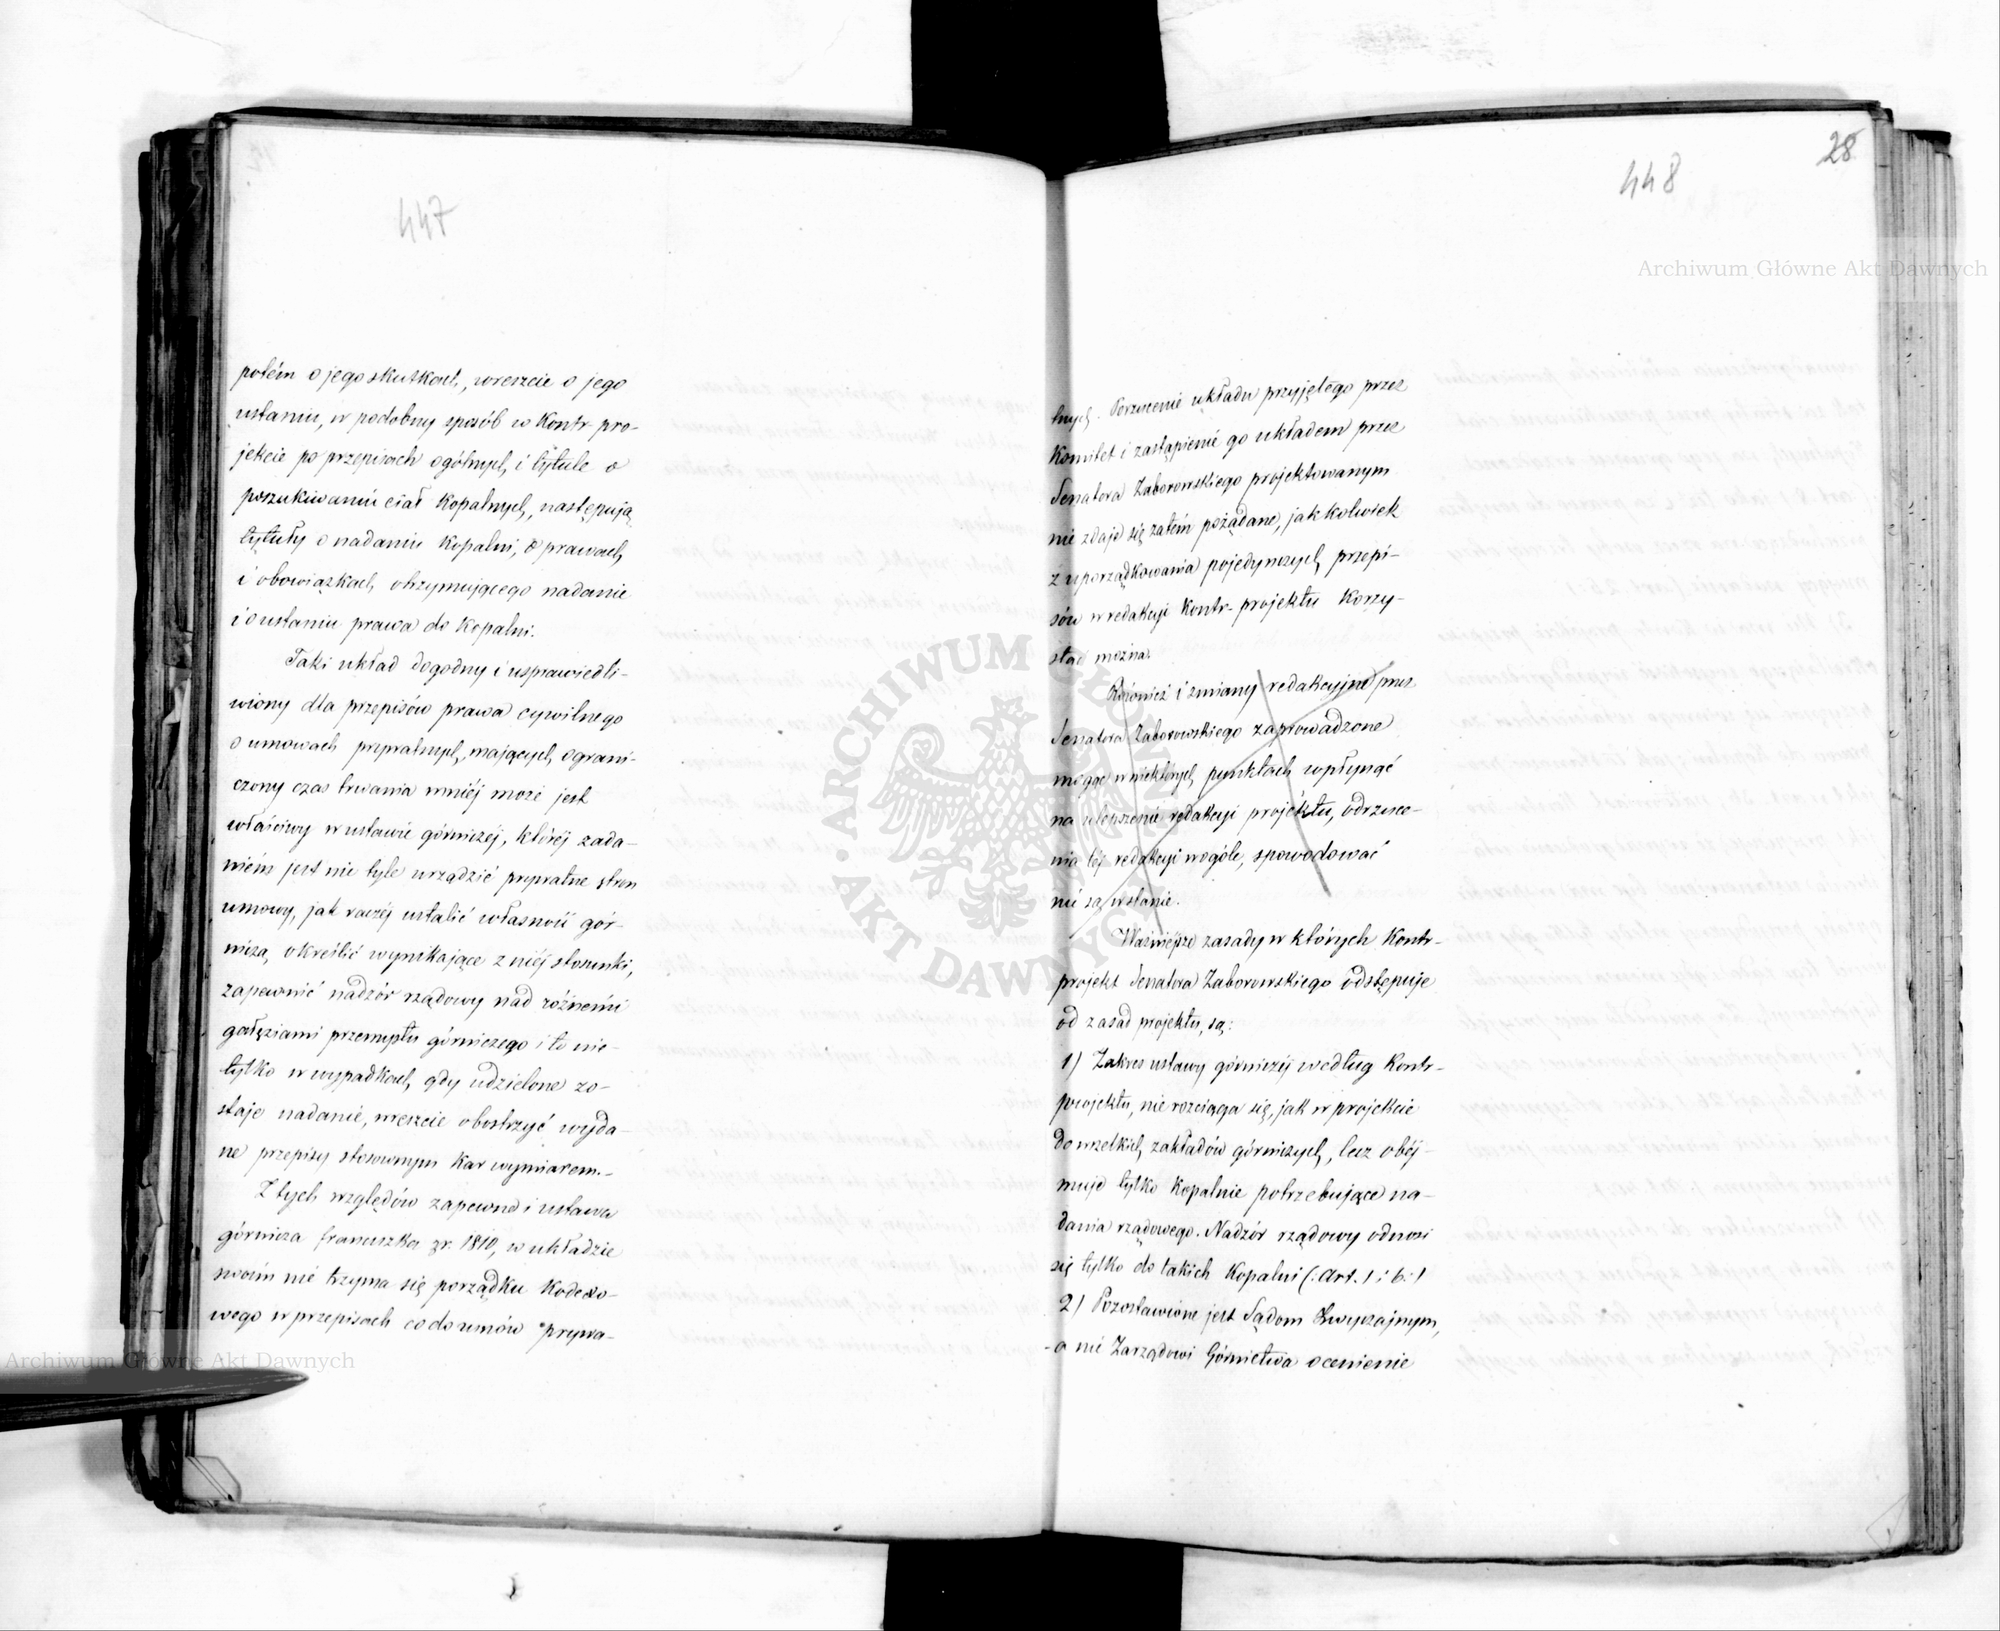 447
potém o jego skutkach, wreszcie o jego
ustaniu, w podobny sposób w Kontr-pro-
jekcie po przepisach ogólnych, i tytule o
poszukiwaniu ciał kopalnych, następują
tytuły o nadaniu kopalni, o prawach,
i obowiązkach, otrzymującego nadanie
i o ustaniu prawa do kopalni.
Taki układ dogodny i usprawiedli-
wiony dla przepisów prawa cywilnego
o umowach prywatnych, mających ograni-
czony czas trwania mniéj może jest
właściwy w ustawie górniczéj, któréj zada-
niém jest nie tyle urządzić prywatne stron
umowy, jak raczéj ustalić własność gór-
niczą, określić wynikające z niéj stosunki,
zapewnić nadzór rządowy nad różnemi
gałęziami przemysłu górniczego i to nie-
tylko w wypadkach, gdy udzielone zo-
staje nadanie, wreszcie obostrzyć wyda-
ne przepisy stosownym kar wymiarem.-
Z tych względów zapewne i ustawa
górnicza francuzka z r. 1810, w układzie
swoim nie trzyma się porządku kodexo-
wego w przepisach co do umów prywa-
28
448
tnych. Porzucenie układu przyjętego przez
Komitet i zastąpienie go układem przez
Senatora Zaborowskiego projektowanym
nie zdaje się zatém pożądane, jakkolwiek
z uporządkowania pojedynczych przepi-
sów w redakcyi Kontr-projektu korzy-
stać można.
Również i zmiany redakcyjne przez
Senatora Zaborowskiego zaprowadzone
mogąc w niektórych punktach wpłynąć
na ulepszenie redakcyi projektu, odrzuce-
nia téj redakcyi wogóle, spowodować
nie są wstanie.
Ważniejsze zasady w których Kontr-
projekt Senatora Zaborowskiego odstępuje
od zasad projektu, są:
1) Zakres ustawy górniczéj według Kontr-
projektu, nie rozciąga się, jak w projekcie
do wszelkich zakładów górniczych, lecz obéj-
muje tylko kopalnie potrzebujące na-
dania rządowego. Nadzór rządowy odnosi
się tylko do takich kopalni (:Art. 1 i 6:)
2) Pozostawione jest Sądom Zwyczajnym,
a nie Zarządowi Górnictwa ocenienie
Archiwum Główne Akt Dawnych
Archiwum Główne Akt Dawnych
ARCHIWUM GŁÓWNE AKT DAWNYCH